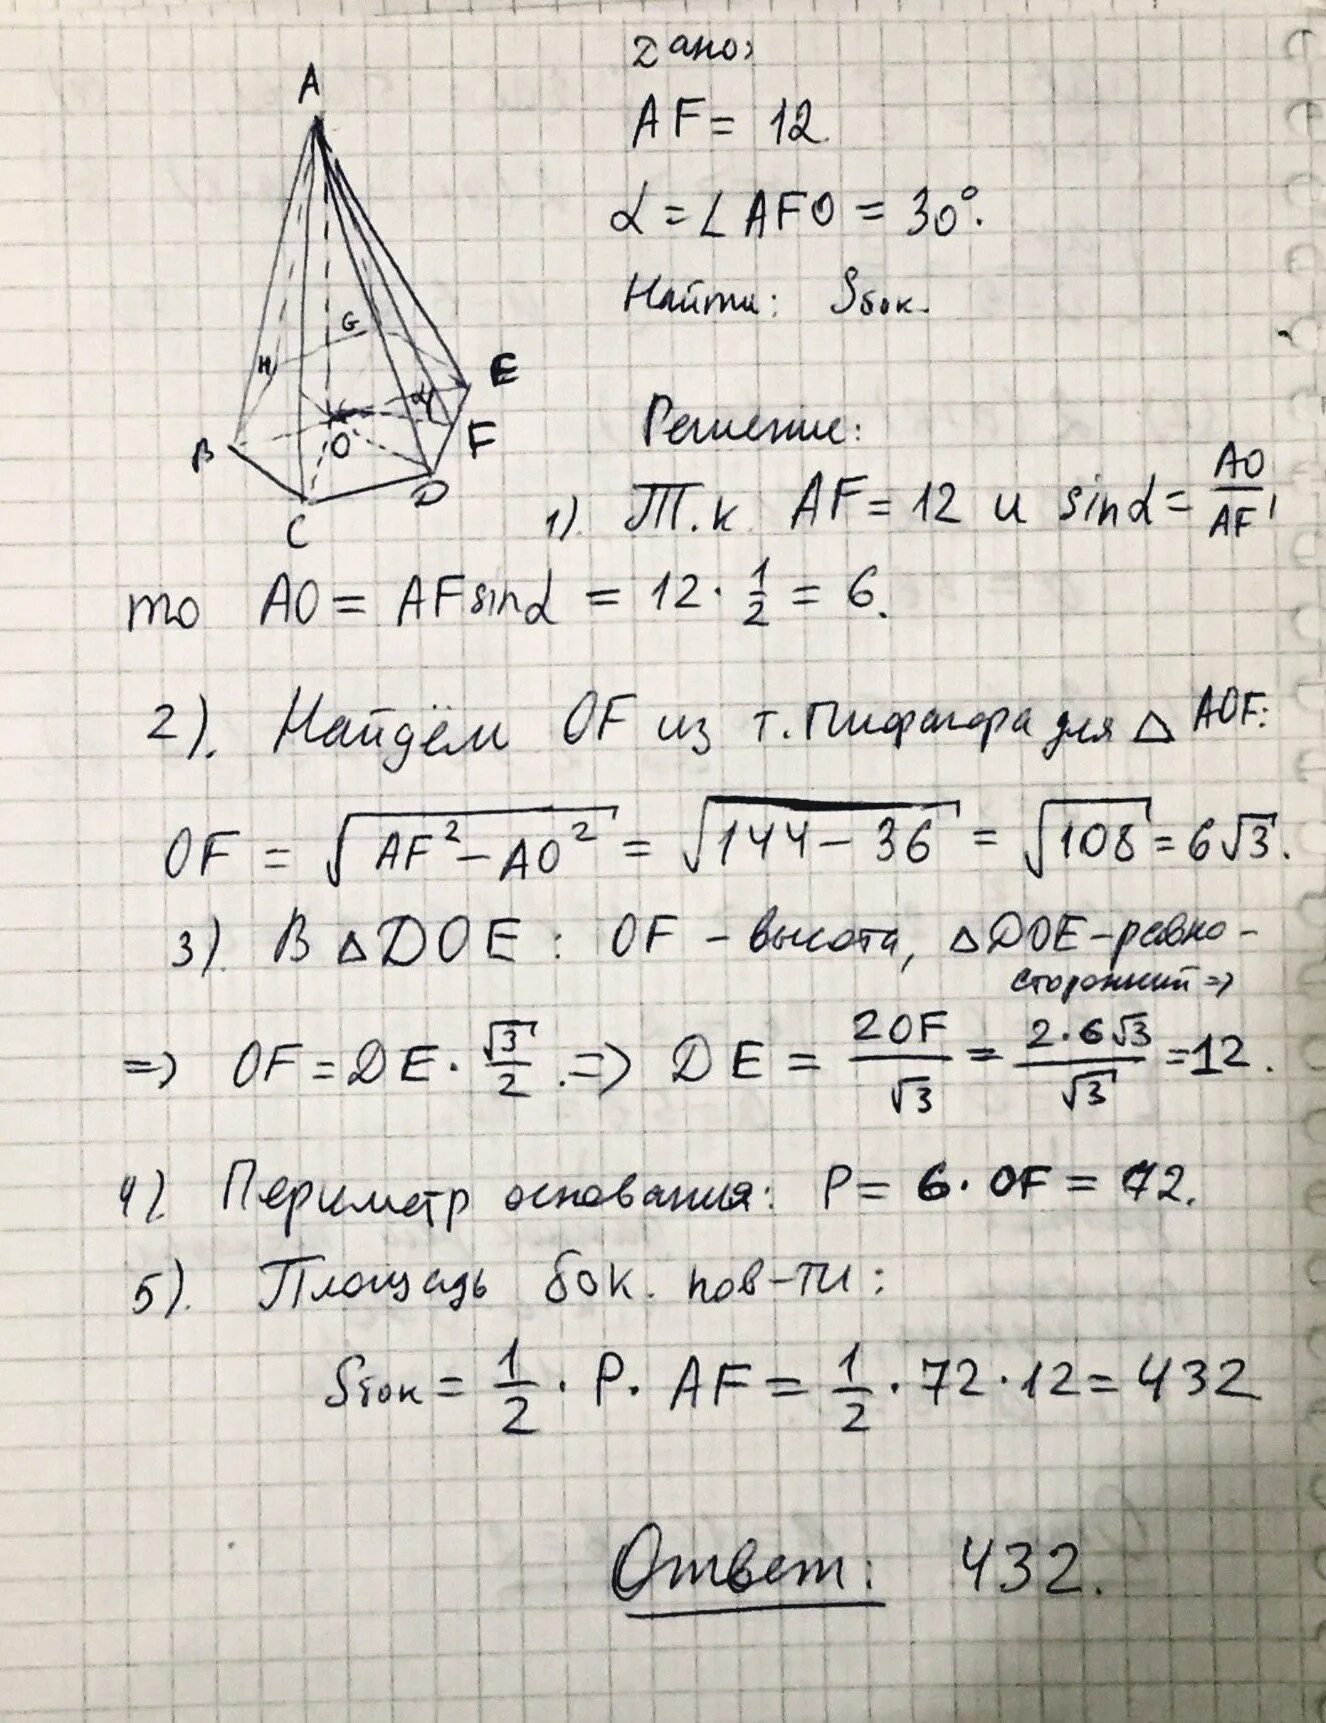 Дано:
A
AF = 12
α = ∠AFO = 30°.
Найти: Sбок.
G
H
E
α
O
F
B
D
C
Решение:
1). Т.к AF = 12 и sinα = AO/AF,
то AO = AFsinα = 12 · 1/2 = 6.
2). Найдём OF из т. Пифагора для △ AOF:
OF = √(AF² − AO²) = √(144 − 36) = √108 = 6√3.
3). В △DOE : OF – высота, △DOE – равно-
сторонний =>
=> OF = DE · √3/2 . => DE = 2OF/√3 = 2·6√3/√3 = 12.
4). Периметр основания: P = 6 · OF = 72.
5). Площадь бок. пов-ти:
Sбок = 1/2 · P · AF = 1/2 · 72 · 12 = 432
Ответ: 432.